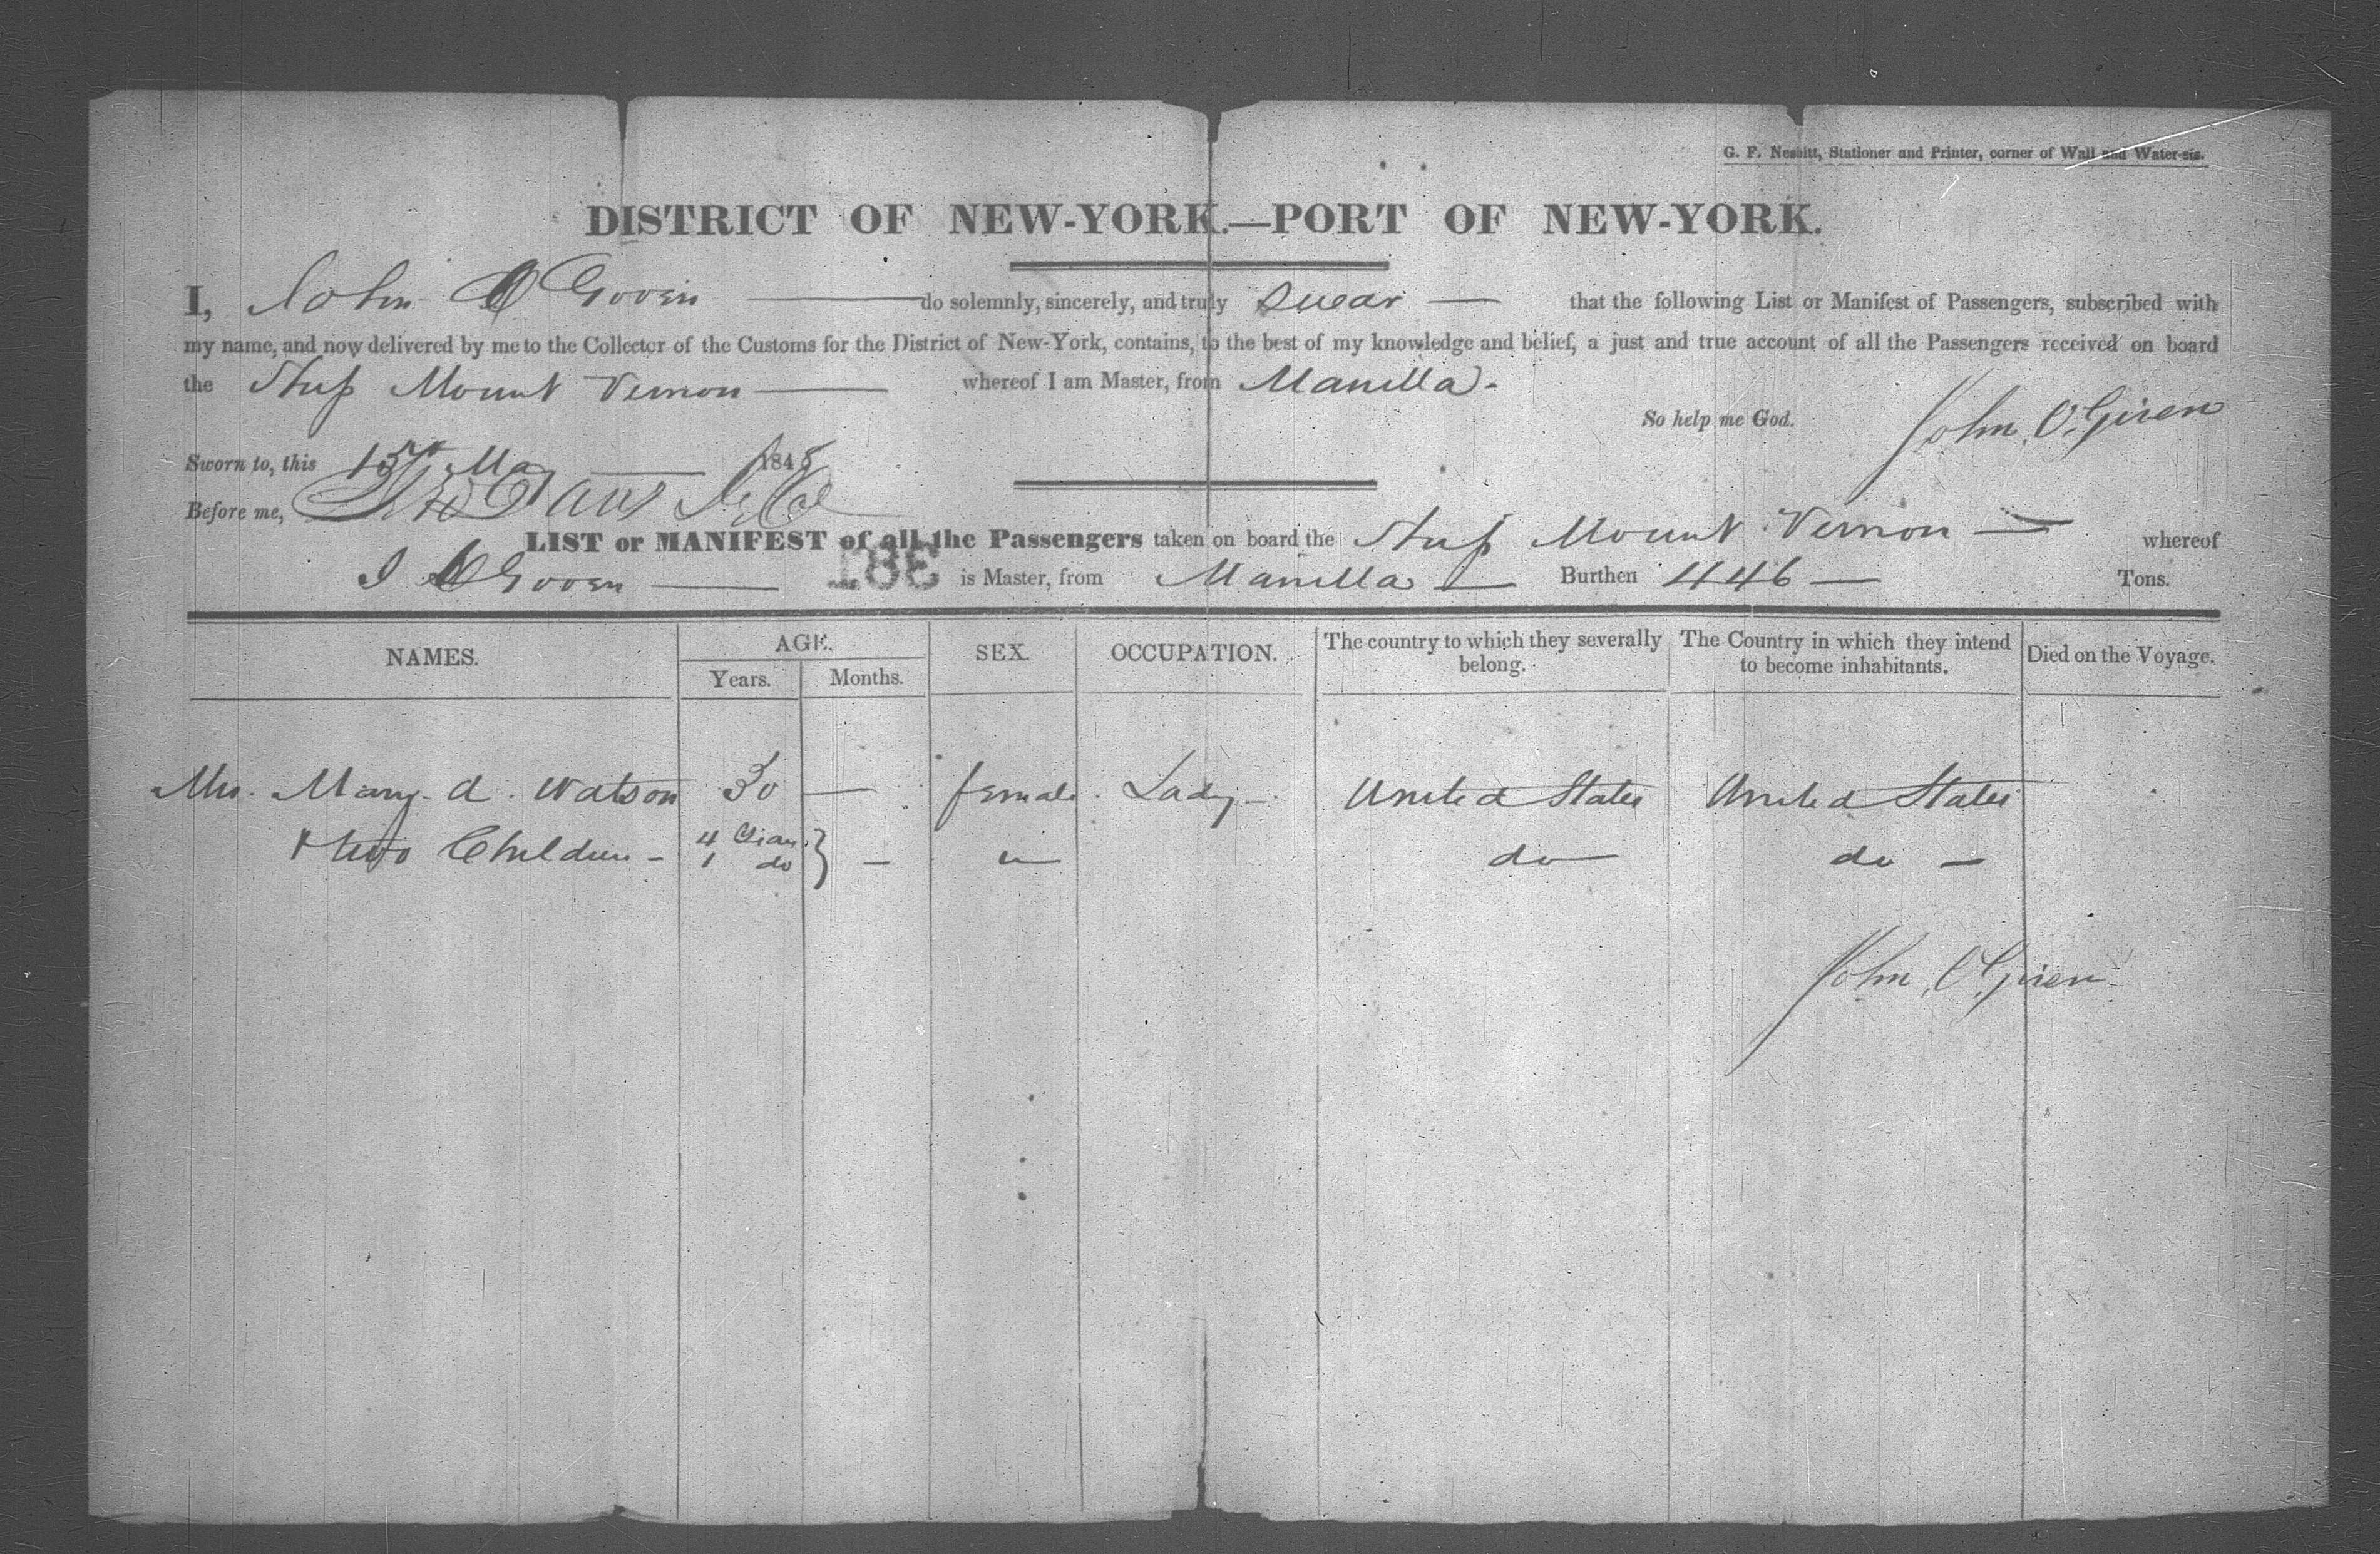 G. F. Nesbitt, Stationer and Printer, corner of Wall and Water-sts.
DISTRICT OF NEW-YORK.—PORT OF NEW-YORK.
I, John O Goven do solemnly, sincerely, and truly Swear that the following List or Manifest of Passengers, subscribed with
my name, and now delivered by me to the Collector of the Customs for the District of New-York, contains, to the best of my knowledge and belief, a just and true account of all the Passengers received on board
the Ship Mount Vernon whereof I am Master, from Manilla.
So help me God. John O.
Sworn to, this 15th May 184
Before me,
LIST or MANIFEST of all the Passengers taken on board the Ship Mount Vernon whereof
J O Goven 381 is Master, from Manilla Burthen 446 Tons.
NAMES. AGE. SEX. OCCUPATION. The country to which they severally belong. The Country in which they intend to become inhabitants. Died on the Voyage.
Years. Months.
Mrs. Mary. A. Watson 30 — female. Lady United States United States
& two Children - 4 Years } — " do do
1 do
John